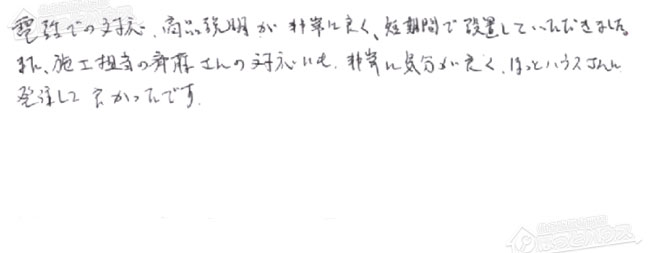 電話での対応、商品説明が非常に良く、短期間で設置していただきました。
また、施工担当の斉藤さんの対応にも、非常に気分が良く、ほっとハウスさんに
発注して良かったです。